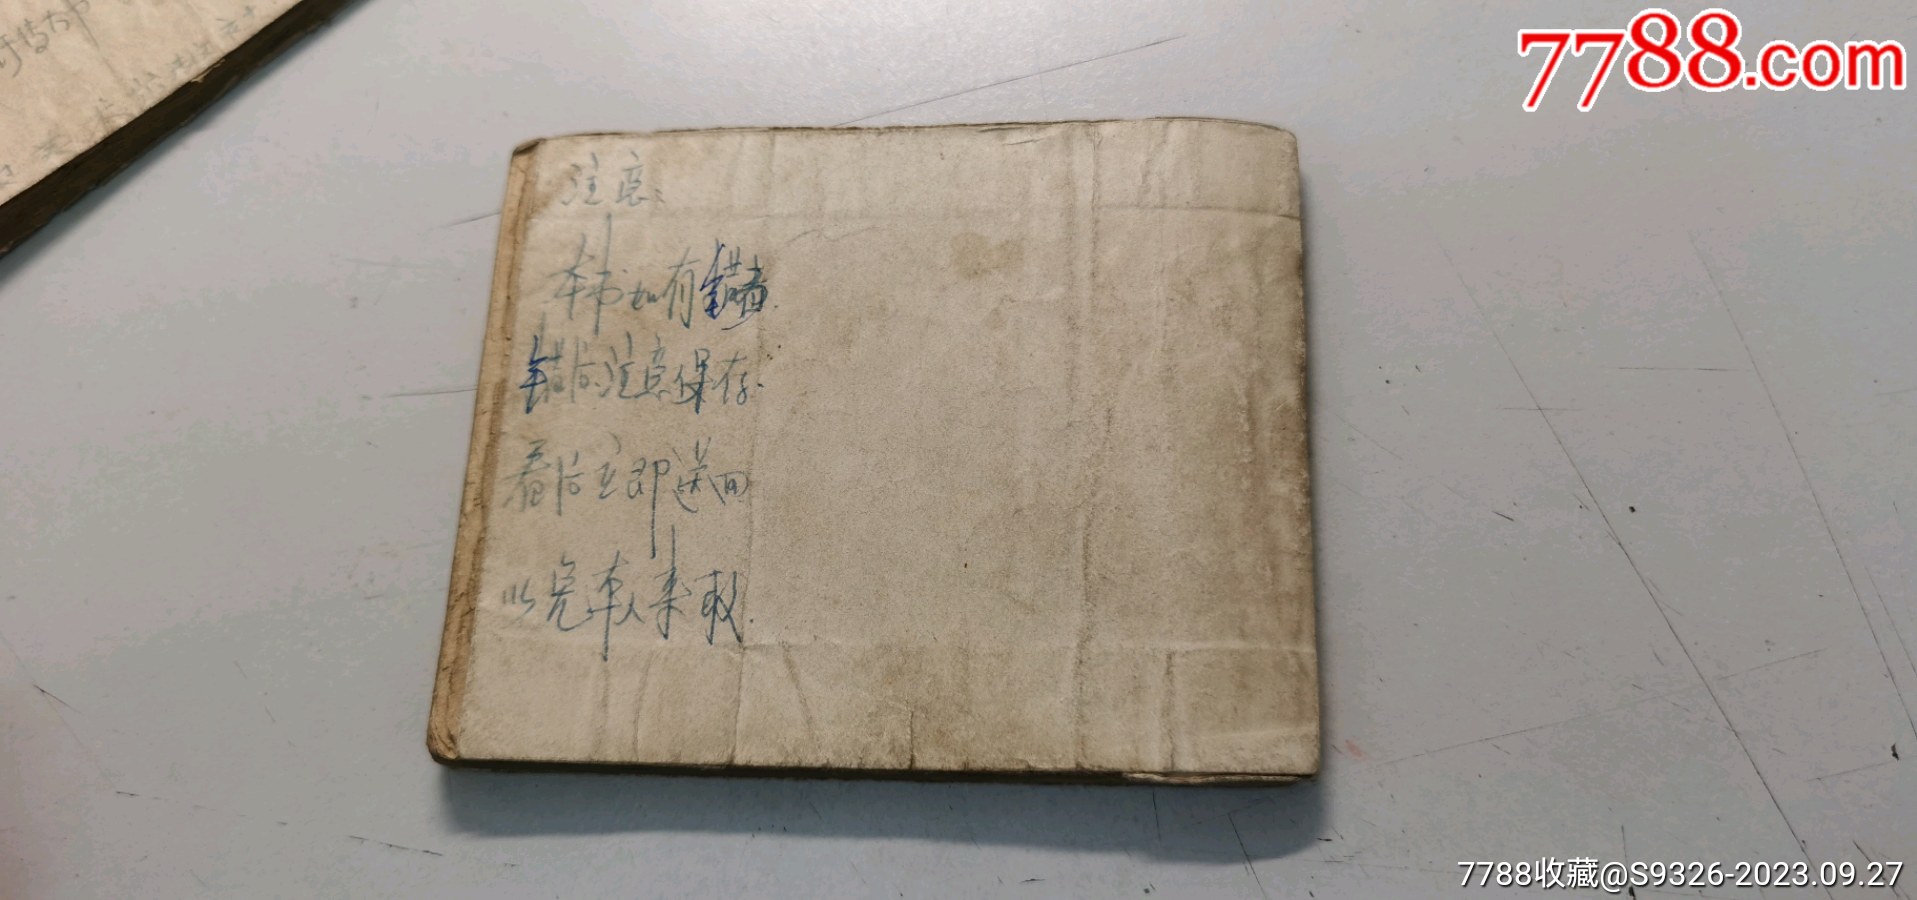 7788.com
注意:
本书如有错者.
错后注意保存.
看后立即送回
以免本人来取.
7788收藏@S9326-2023.09.27